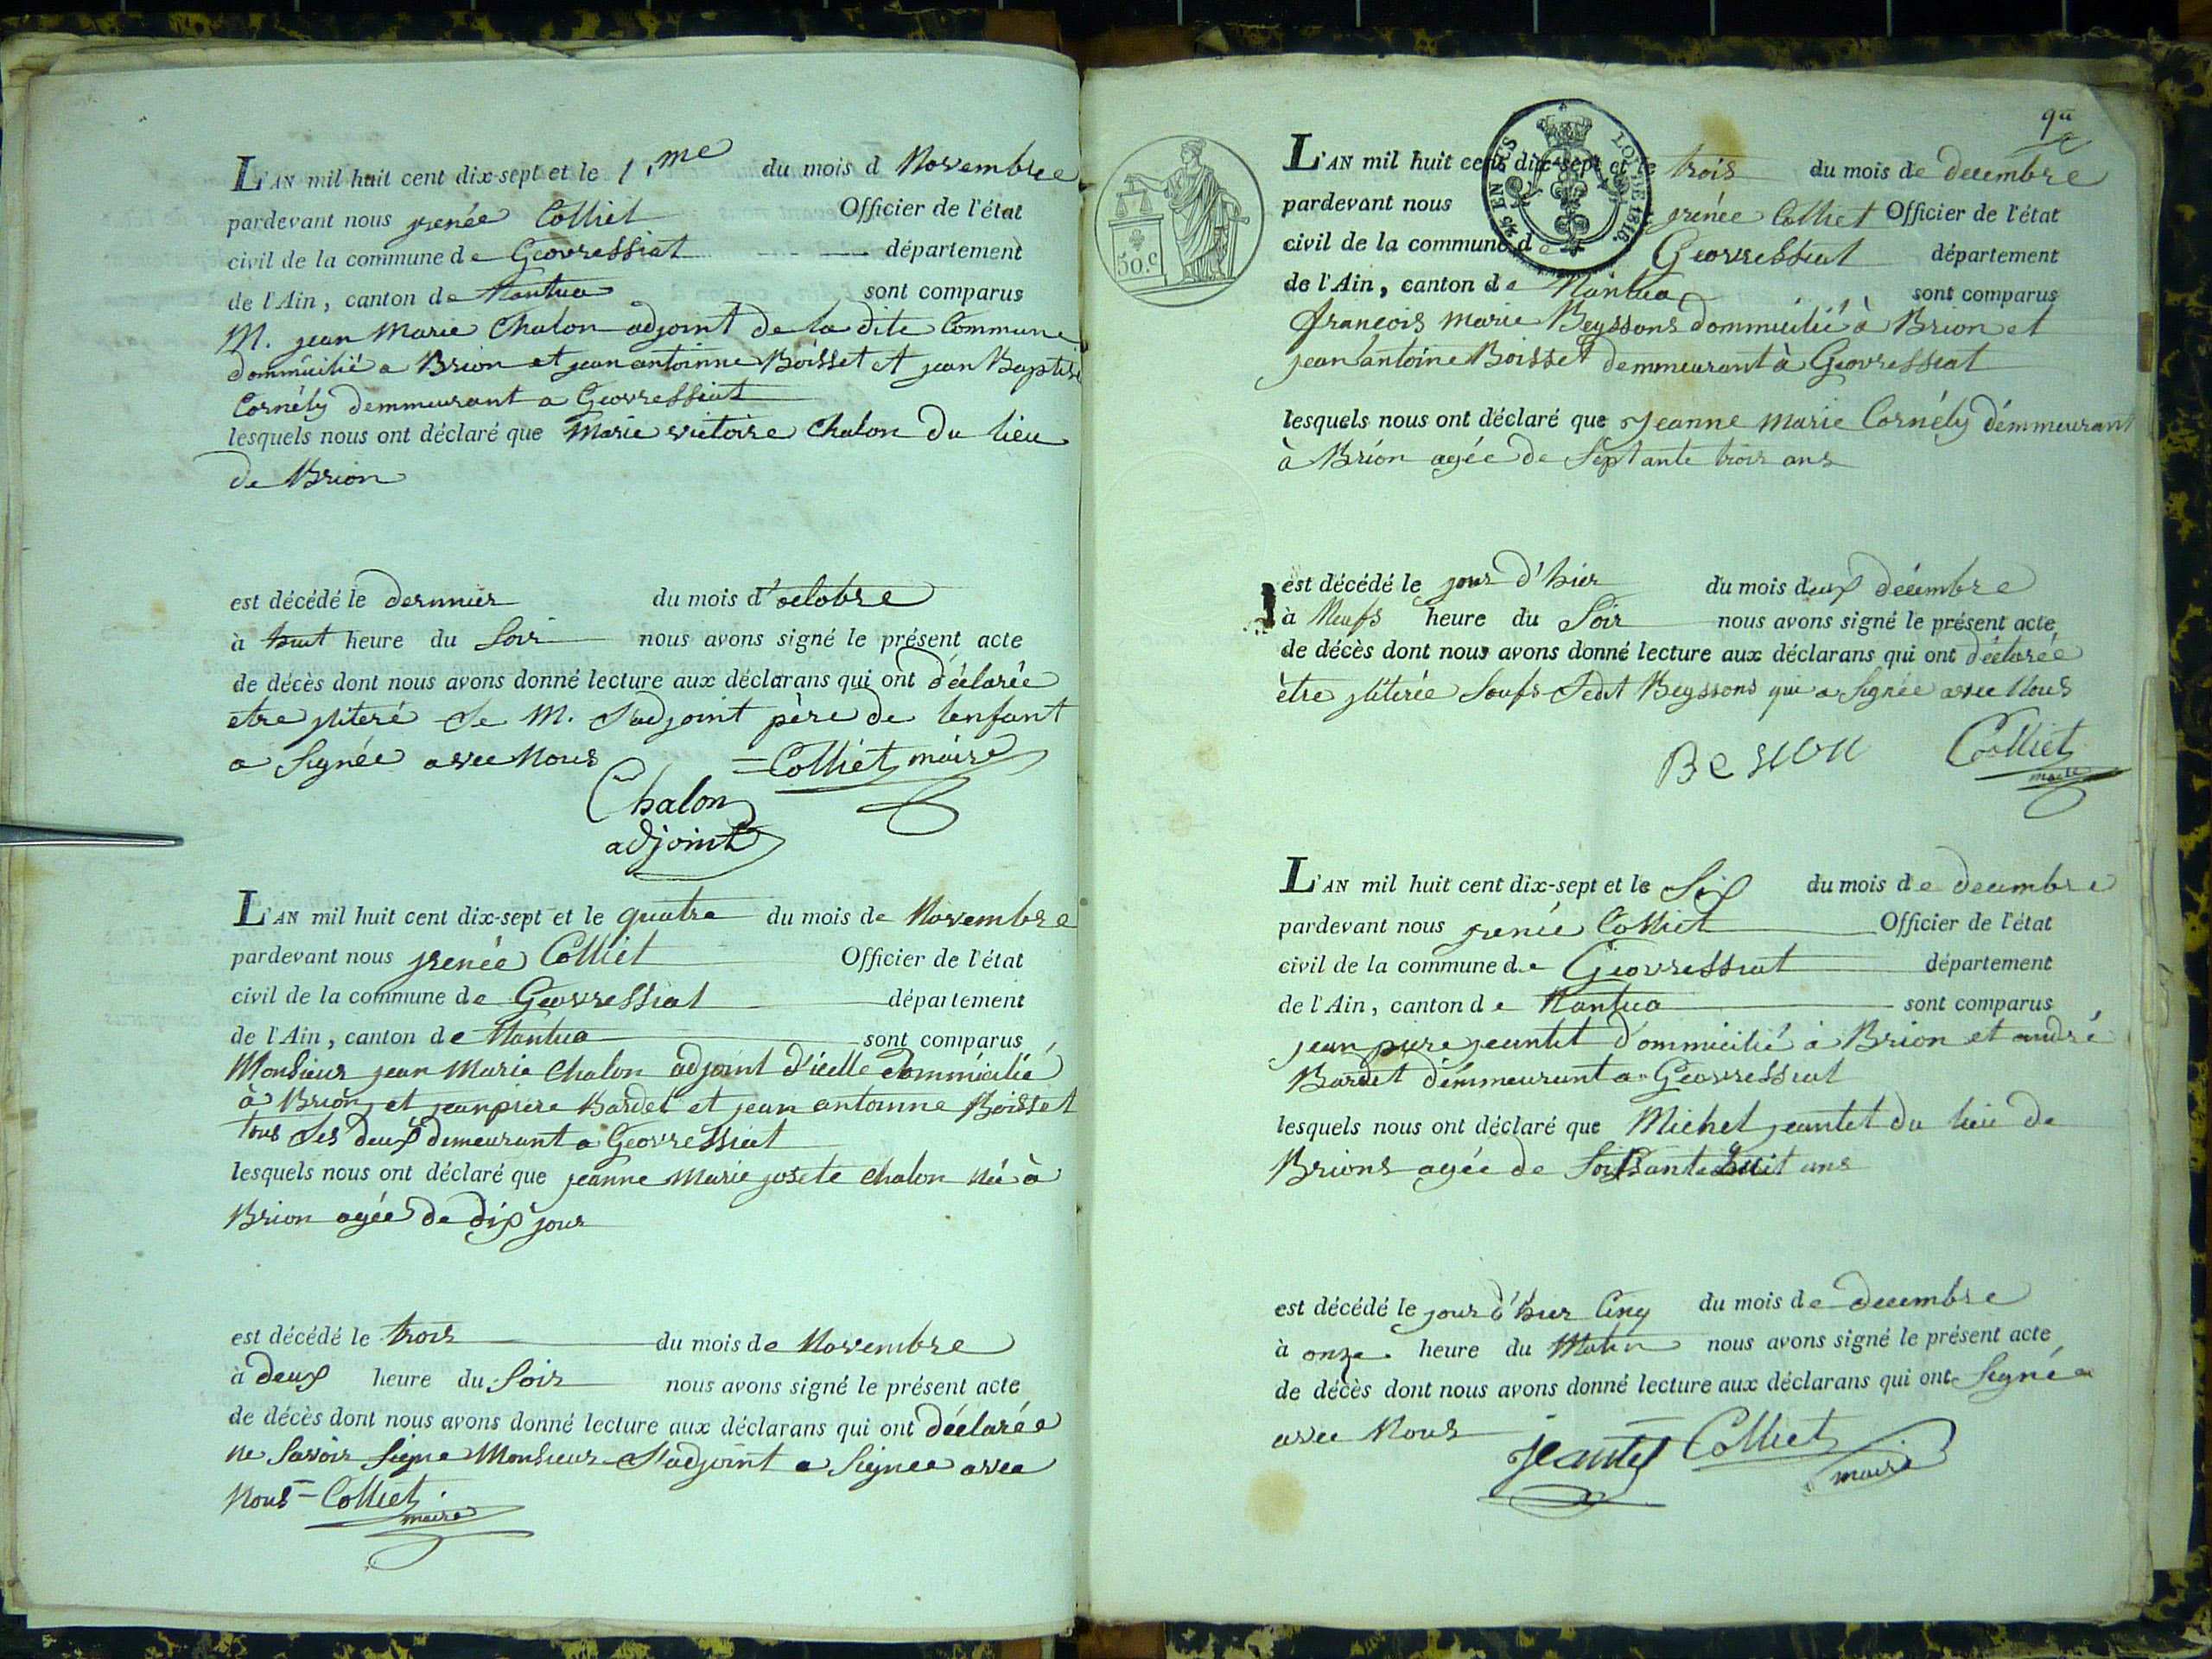 L'AN mil huit cent dix-sept et le 1.me du mois d Novembre
pardevant nous renée Colliet Officier de l'état
civil de la commune de Geovressiat département
de l'Ain, canton de Nantua sont comparus
M. jean Marie Chalon adjoint de la dite Commune
dommicilié a Brion et jean antoinne Boisset et jean Baptiste
Cornély demmeurant a Geovressiat
lesquels nous ont déclaré que Marie victoire Chalon du lieu
de Brion
est décédé le dernnier du mois d'octobre
à huit heure du Soir nous avons signé le présent acte
de décès dont nous avons donné lecture aux déclarans qui ont déclarée
etre jliteré Se M. S'adjoint père de lenfant
a Signée avec Nous = Colliet maire
Chalon
adjoint
L'AN mil huit cent dix-sept et le quatre du mois de Novembre
pardevant nous renée Colliet Officier de l'état
civil de la commune de Geovressiat département
de l'Ain, canton de Nantua sont comparus
Monsieur jean Marie Chalon adjoint d'icelle dommicilié
à Brion, et jeanpiere Bardet et jean antoinne Boisset
tous Les deux demeurant a Geovressiat
lesquels nous ont déclaré que jeanne Marie josete Chalon Né à
Brion agée de dix jour
est décédé le trois du mois de Novembre
à deux heure du Soir nous avons signé le présent acte
de décès dont nous avons donné lecture aux déclarans qui ont déclarée
ne Savoir Signe Monsieur S'adjoint a Signee avec
Nous = Colliet
maire
50.c
EN SUS
LOI DE 1816.
L'AN mil huit cent dix-sept et le trois du mois de decembre
pardevant nous renée Colliet Officier de l'état
civil de la commune de Geovressiat département
de l'Ain, canton de Nantua sont comparus
francois Marie Beyssons dommicilié à Brion et
jean antoine Boisset demmeurant à Geovressiat
lesquels nous ont déclaré que Jeanne Marie Cornély démmeurant
à Brion agée de Septante trois ans
est décédé le jour d'hier du mois deux décembre
à Neufs heure du Soir nous avons signé le présent acte
de décès dont nous avons donné lecture aux déclarans qui ont déclarée
être jliterée Soufs Ledit Beyssons qui a Signée avec Nous
Colliet
maire
L'AN mil huit cent dix-sept et le Six du mois de decembre
pardevant nous renée Colliet Officier de l'état
civil de la commune de Geovressiat département
de l'Ain, canton de Nantua sont comparus
jean piere jeantet dommicilié à Brion et andré
Bardet démmeurant a Geovressiat
lesquels nous ont déclaré que Michel jeantet du lieu de
Brions agée de Soixsante huit ans
est décédé le jour d'hier Cinq du mois de decembre
à onze heure du Matin nous avons signé le présent acte
de décès dont nous avons donné lecture aux déclarans qui ont Signée
avec Nous Jeantet Colliet
maire